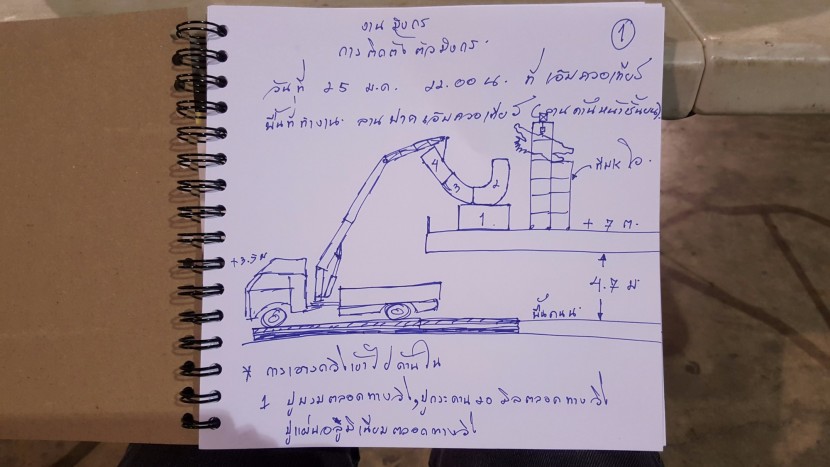 งานมังกร
①
การติดตั้งตัวมังกร
วันที่ 25 ม.ค. 22.00 น. ที่ เอ็มควอเทียร์
พื้นที่ทำงาน ลานปาค เอ็มควอเทียร์ (ลานด้านหน้าชั้นบน)
4
3
2
1.
+ 7 ต.
+3.5 ม
4.7 ม
พื้นถนน
* การเอารถวิ่งเข้าไปด้านใน
1 ปูพรมตลอดทางวิ่ง, ปูกระดาน 20 มิลตลอดทางวิ่ง
ปูแผ่นอลูมิเนียมตลอดทางวิ่ง